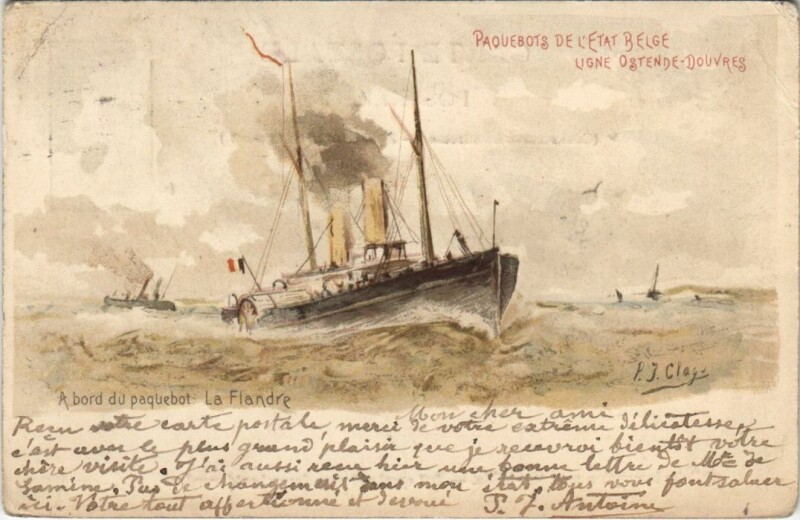 PAQUEBOTS DE L'ETAT BELGE
LIGNE OSTENDE-DOUVRES
P. J. Clays
A bord du paquebot: La Flandre
Mon cher ami
Reçu votre carte postale merci de votre extrême délicatesse,
c'est avec le plus grand plaisir que je recevroi bientôt votre
chère visite. J'ai aussi reçu hier une bonne lettre de Mme de
Pas de changement dans mon état, tous vous font saluer
ici. Votre tout affectionné et dévoué P. J. Antoine